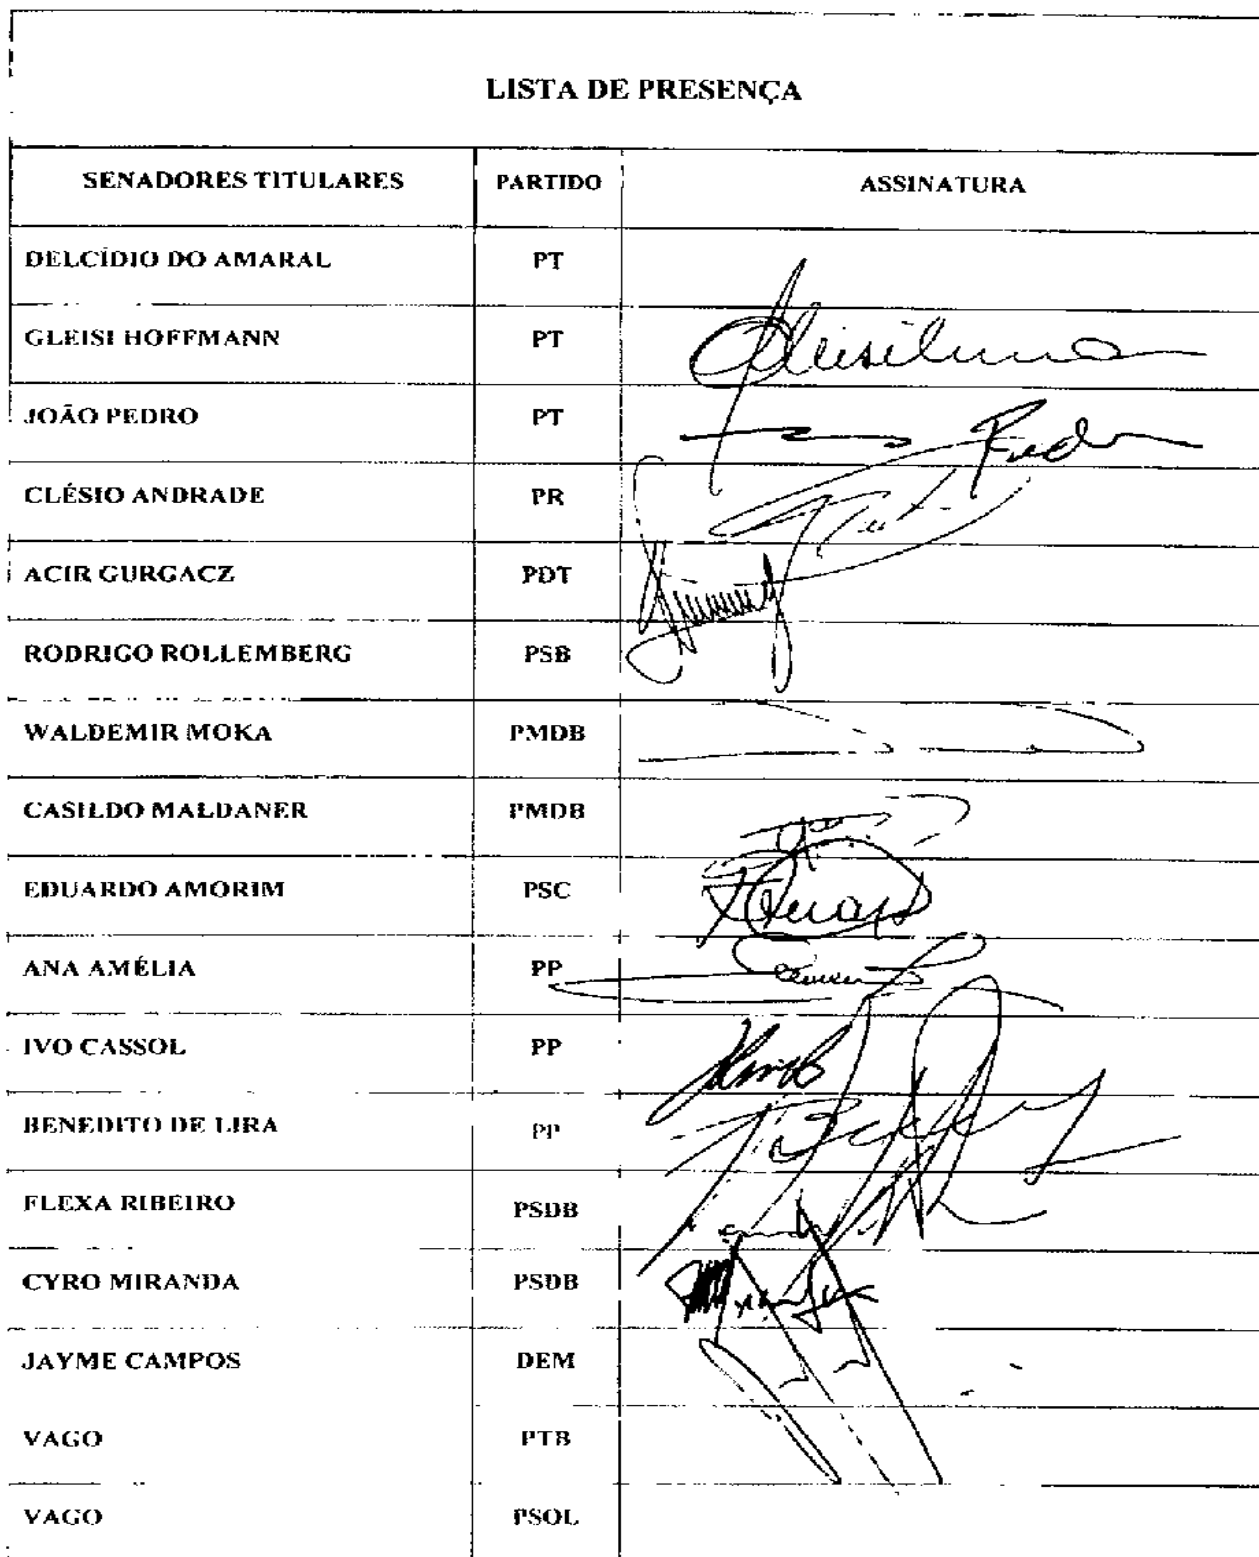 LISTA DE PRESENÇA
SENADORES TITULARES PARTIDO ASSINATURA
DELCÍDIO DO AMARAL PT
GLEISI HOFFMANN PT
JOÃO PEDRO PT
CLÉSIO ANDRADE PR
ACIR GURGACZ PDT
RODRIGO ROLLEMBERG PSB
WALDEMIR MOKA PMDB
CASILDO MALDANER PMDB
EDUARDO AMORIM PSC
ANA AMÉLIA PP
IVO CASSOL PP
BENEDITO DE LIRA PP
FLEXA RIBEIRO PSDB
CYRO MIRANDA PSDB
JAYME CAMPOS DEM
VAGO PTB
VAGO PSOL